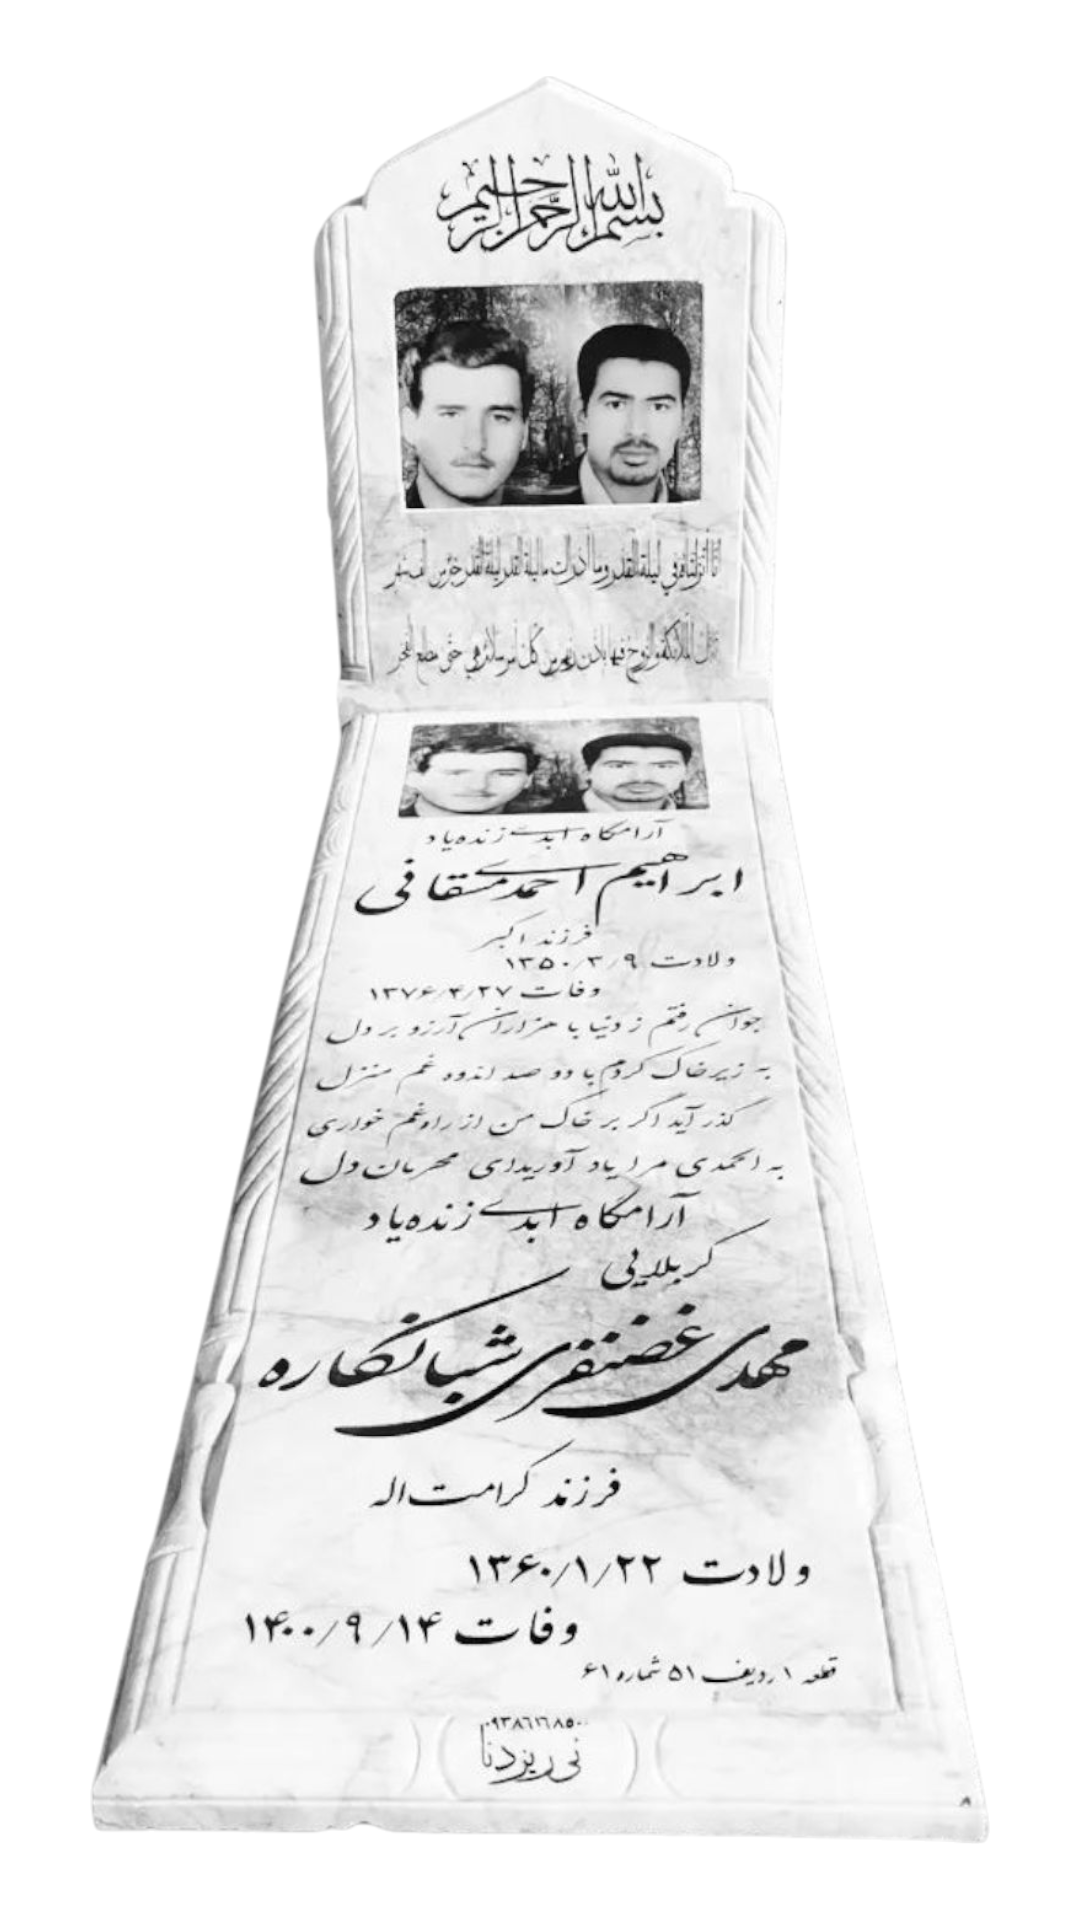 بسم الله الرحمن الرحیم
انا أنزلناه في ليلة القدر وما أدراك ما ليلة القدر ليلة القدر خير من الف شهر
تنزل الملائكة والروح فيها باذن ربهم من كل أمر سلام هي حتى مطلع الفجر
آرامگاه ابدی زنده‌یاد
ابراهیم احمدی مسقافی
فرزند اکبر
ولادت ۱۳۵۰/۳/۹
وفات ۱۳۷۶/۴/۲۷
جوان رفتم ز دنیا با هزاران آرزو بر دل
به زیر خاک کردم با دو صد اندوه غم منزل
گذر آید اگر بر خاک من از راه غم خواری
به الحمدی مرا یاد آورید ای مهربان دل
آرامگاه ابدی زنده‌یاد
کربلایی
مهدی غضنفری شبانکاره
فرزند کرامت اله
ولادت ۱۳۶۰/۱/۲۲
وفات ۱۴۰۰/۹/۱۴
قطعه ۱ ردیف ۵۱ شماره ۶۱
۰۹۳۸۶۱۶۸۵۰۰
نی ریز دنا
۸